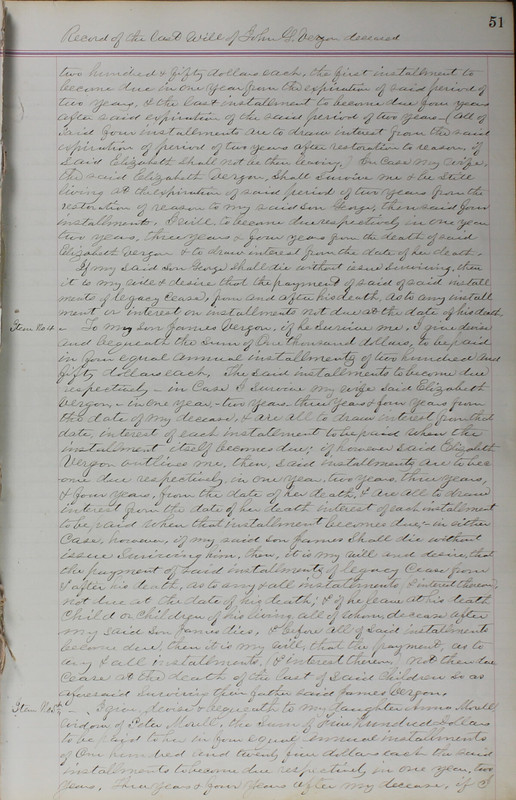 51
Record of the Last Will of John G. Vergon deceased
two hundred & fifty dollars each, the first installment to
become due in one year from the expiration of said period of
two years, & the last installment to become due four years
after said expiration of the said period of two years (all of
said four installments are to draw interest from the said
expiration of period of two years after restoration to reason, if
Said Elizabeth shall not be then living.) In Case my wife,
the said Elizabeth Vergon, Shall Survive me & be Still
living at the expiration of said period of two years from the
restoration of reason to my said Son George, then said four
installments, I will, to become due respectively in one year
two years, three years & four years from the death of said
Elizabeth Vergon & to draw interest from the date of her death.
If my Said Son George Shall die without issue Surviving, then
it is my will & desire that the payment of said of said install
ments of legacy Cease, from and after his death, as to any install
ment or interest on installments not due at the date of his death
Item No 4 - To my Son James Vergon, if he Survive me, I give devise
and bequeath the Sum of One thousand dollars, to be paid
in four equal annual installments of two hundred and
fifty dollars each, The said installments to become due
respectively - in Case I Survive my wife Said Elizabeth
Vergon, - in one year, - two years three years & four years from
the date of my decease, & are all to draw interest from that
date, interest of each installment to be paid when the
installment itself becomes due; if however Said Elizabeth
Vergon outlives me, then, Said installments are to bec
ome due respectively, in one year, two years, three years,
& four years, from the date of her death, & are all to draw
interest from the date of her death interest of each installment
to be paid when that installment becomes due; - in either
Case, however, if my said son James Shall die without
issue Surviving him, then, it is my will and desire, that
the payment of said installments of legacy Cease from
& after his death, as to any & all installments, & interest thereon
not due at the date of his death; & if he leave at his death
Child or Children of his living all of whom, decease after
my said Son James dies, & before all of Said installments
become due, then it is my will, that the payment, as to
any & all installments, & interest thereon, not then due
Cease at the death of the last of Said Children so as
aforesaid Surviving their father said James Vergon.
Item No 5 - I give, devise & bequeath to my daughter Anna
widow of Peter the Sum of Five Hundred Dollars
to be paid to her in four equal annual installments
of One hundred and twenty five dollars each the said
installments to become due respectively in one year, two
Years, three years & four Years after my decease, if I